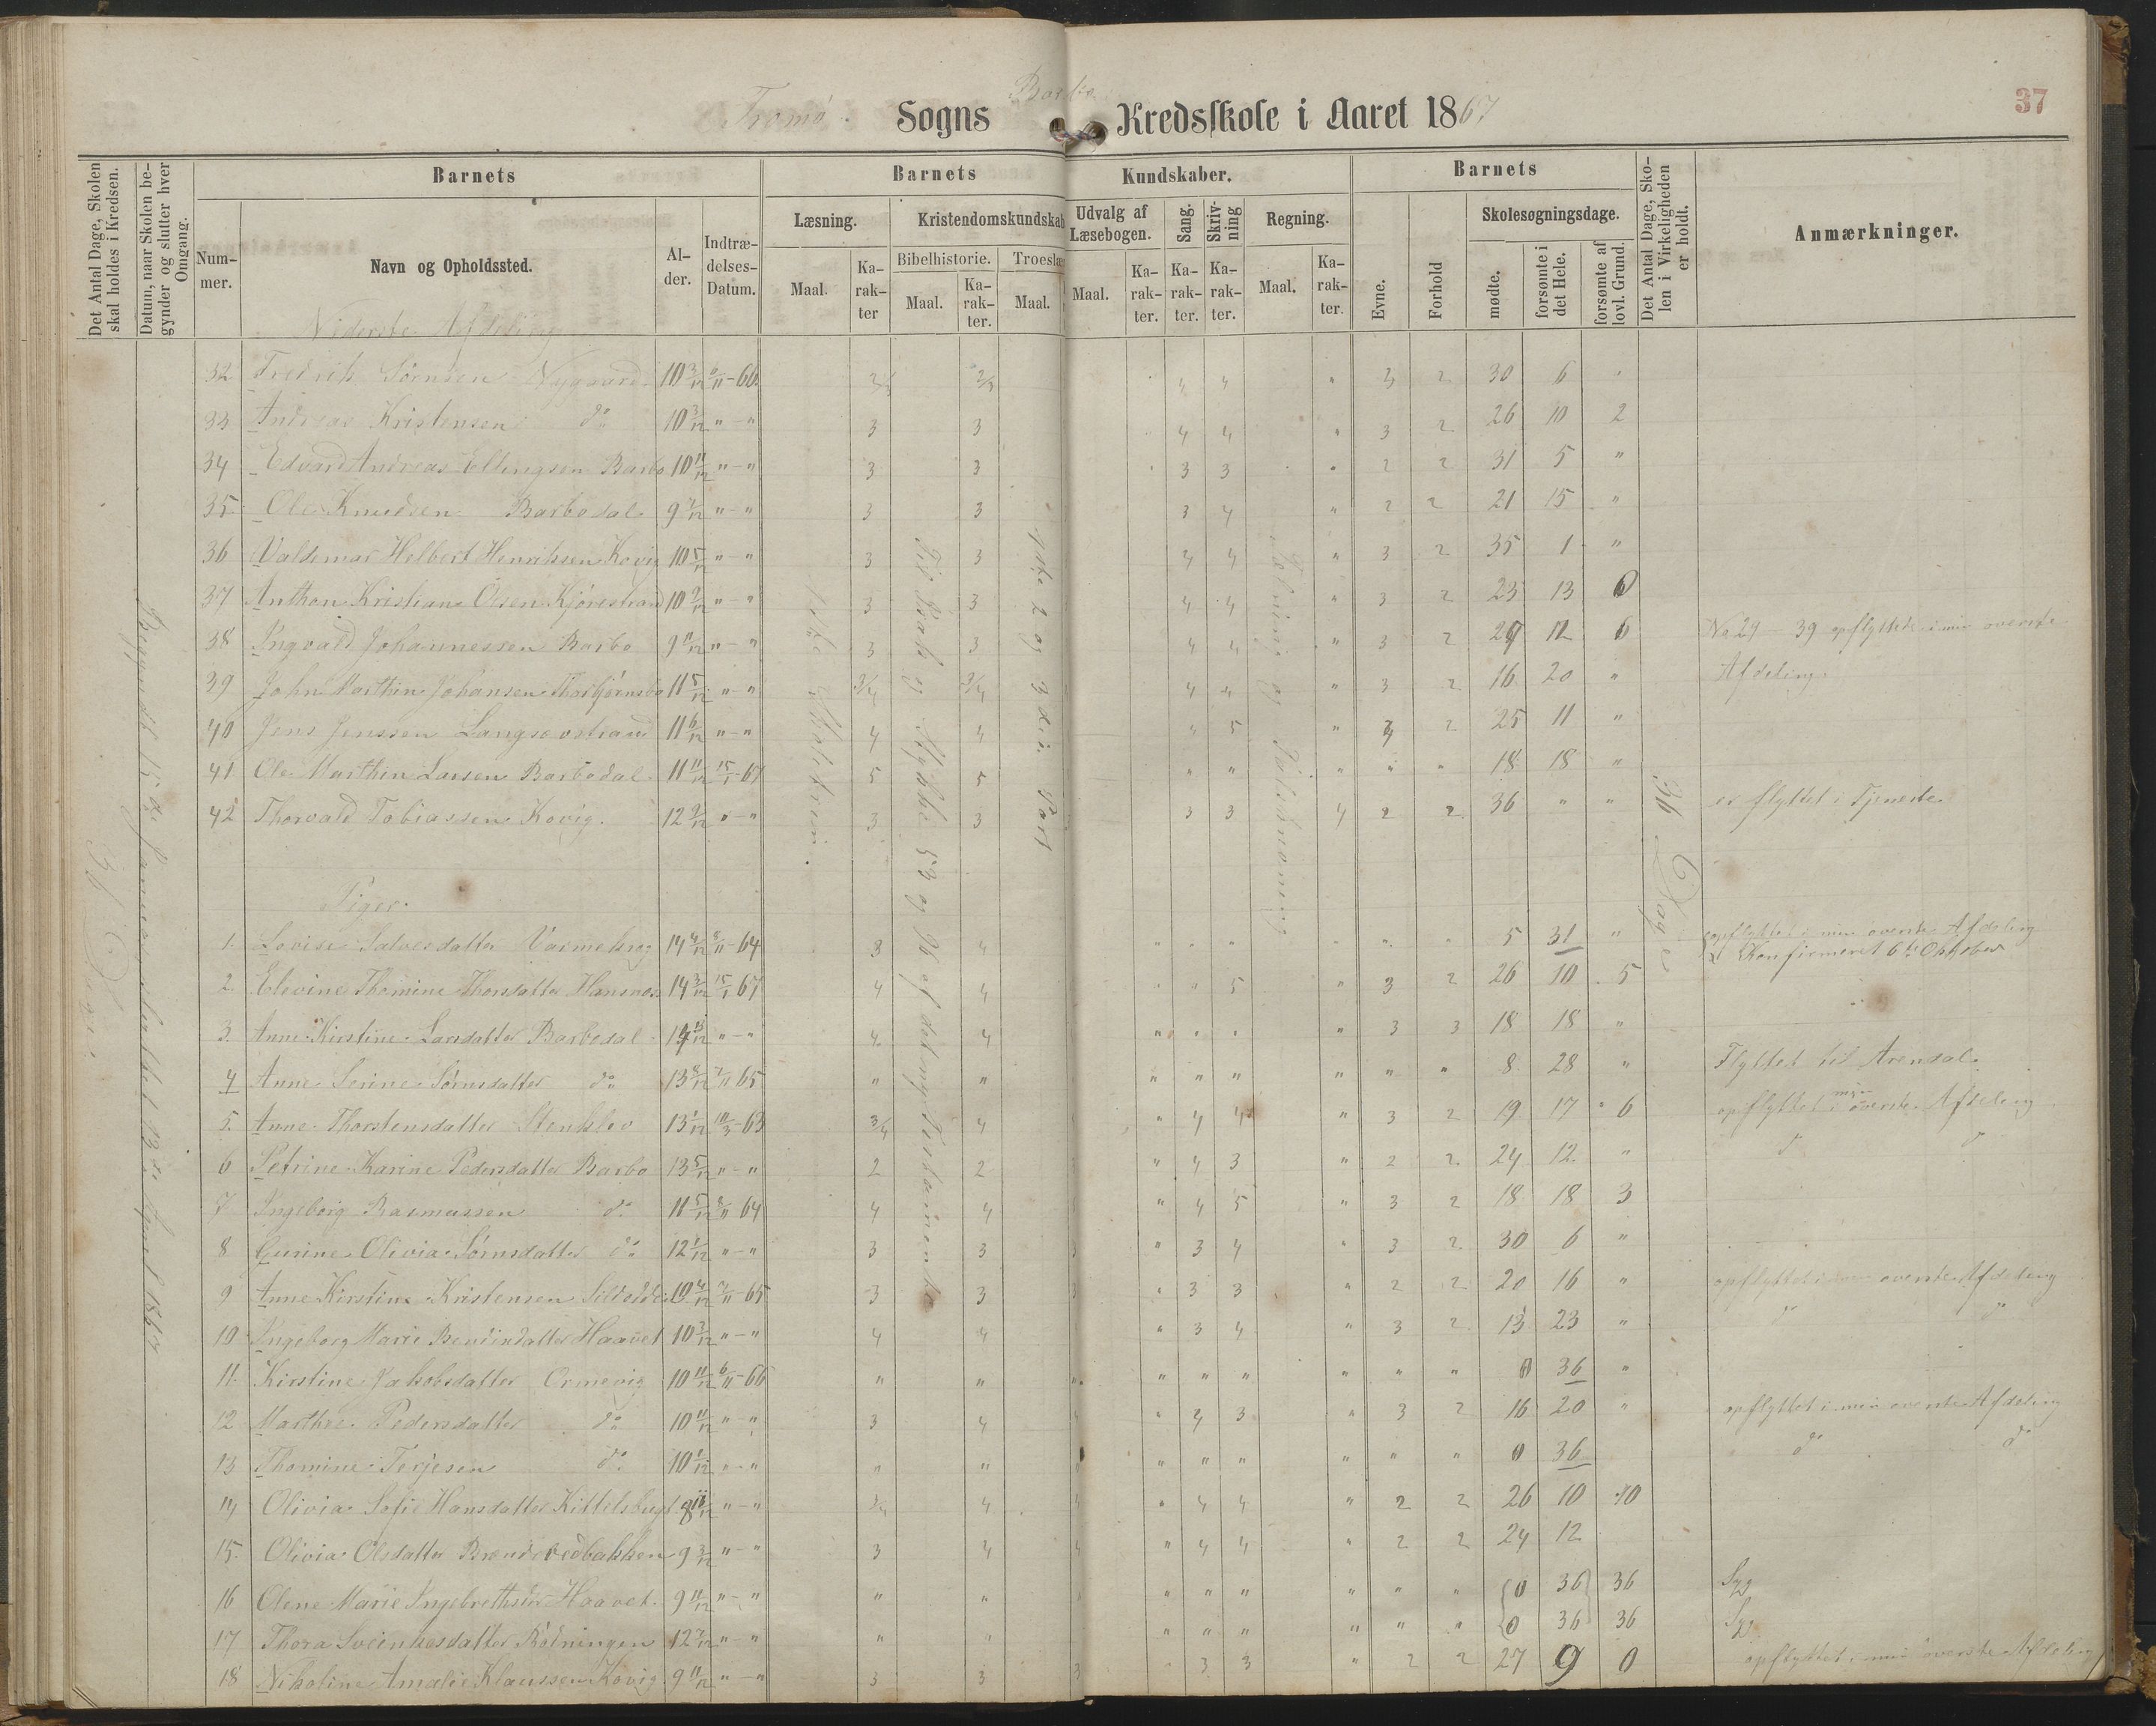 37
Tromø Sogns Barbo Kredsskole i Aaret 1867
Det Antal Dage, Skolen skal holdes i Kredsen.
Datum, naar Skolen begynder og slutter hver Omgang.
Barnets
Nummer.
Navn og Opholdssted.
Alder.
Indtrædelses-Datum.
Barnets Kundskaber.
Læsning.
Maal.
Karakter
Kristendomskundskab
Bibelhistorie.
Maal.
Karakter.
Troeslæ
Maal.
Udvalg af Læsebogen.
Maal.
Karakter.
Sang.
Karakter.
Skrivning
Karakter.
Regning.
Maal.
Karakter.
Barnets
Evne.
Forhold
Skolesøgningsdage.
mødte.
forsømte i det Hele.
forsømte af lovl. Grund.
Det Antal Dage, Skolen i Virkeligheden er holdt.
Anmærkninger.
Niderste Afdeling
32 Fredrik Sørensen Nygaard 10 3/12 6/11-66 4 4 " 3 2 30 6
33 Andreas Kristensen do 10 3/12 " - " 3 3 4 4 " 3 2 26 10 2
34 Edvard Andreas Ellingsen Barbo 10 11/12 " - " 3 3 3 3 " 2 2 31 5 "
35 Ole Knudsen Barbodal 9 " - " 3 3 3 4 " 2 2 21 15 "
36 Valdemar Helbert Henriksen Kovig 10 5/12 " - " 3 3 4 4 " 3 2 35 1 "
37 Anthon Kristian Olsen Kjørestrand 10 " - " 3 3 4 4 " 3 2 23 13 0
38 Ingvald Johannessen Barbo 9 11/12 " - " 3 3 4 4 " 3 2 12 6 No 29 - 39 opflyttet i min øverste
39 John Marthin Johansen Thorbjørnsbo 11 5/12 " - " 3/4 3/4 4 4 " 3 2 16 20 " Afdeling
40 Jens Jenssen Langsevstrand 11 6/12 " - " 4 4 " 5 " 3 2 25 11 "
41 Ole Marthin Larsen Barbodal 11 11/12 15/1-67 5 5 " " " " " 18 18 "
42 Thorvald Tobiassen Kovig. 12 " - " 3 3 3 3 4 2 2 36 " " er flyttet i Tjeneste
Piger.
1. Lovise Salvesdatter 14 8/11-64 3 4 " " " " " " 5 31 " opflyttet i min øverste Afdeling
Konfirmeret 6te Oktober
2 Elevine Thomine Thorsdatter Hansnæs 14 3/12 15/1 67 4 4 " " 5 " 3 2 26 10 5
3. Anne Kirstine Larsdatter Barbodal 14 " - " 4 4 " " " " 3 3 18 18 "
4 Anne Serine Sørnsdatter do 13 7/11 65 " " " " " " " " 8 28 " Flyttet til Arendal.
5. Anne Thorstensdatter Stenklev 13 1/12 10/3-63 3/4 4 " 4 4 " 3 2 19 17 6 opflyttet i min øverste Afdeling
6 Petrine Karine Pedersdatter Barbo 13 5/12 " - " 2 2 " 4 3 " 2 2 24 12 " do do
7 Ingeborg Rasmussen do 11 5/12 8/11 64 4 4 " 4 5 " 3 2 18 18 3
8 Gurine Olivia Sørnsdatter do 12 1/12 " - " 3 3 3 " 3 4 " 3 2 30 6 "
9 Anne Kirstine Kristensen 10 7/11-65 3 3 3 " 3 3 " 2 2 20 16 " opflyttet i min øverste Afdeling
10 Ingeborg Marie Haavet 10 " - " 4 4 " 3 4 " 3 2 13 23 " do do
11. Kirstine Jakobsdatter Ormevig 10 11/12 6/11-66 " " " " " " " " 0 36 "
12 Marthe Pedersdatter do 10 11/12 " - " 3 4 4 " 4 3 " 3 2 16 20 " opflyttet i min øverste Afdeling
13 Thomine Terjesen do 10 " - " " " " " " " " " 0 36 do do
14 Olivia Sofie Hansdatter Kittelsbugt 8 " - " 3/4 4 4 " 4 4 " 2 2 26 10 10
15. Olivia Olsdatter Brændevedbakken 9 3/12 " - " 3 4 4 " 4 4 " 2 2 24 12
16 Olene Marie Haavet 9 11/12 " - " " " " " " " " " 0 36 36 Syg
17 Thora Rødningen 12 " - " " " " " " " " " 0 36 36 Syg
18 Nikoline Amalie Klaussen Kovig 9 11/12 " - " 3 3 3 " 3 3 " 2 2 27 9 0 opflyttet i min øverste Afdeling
36 Dage
Begyndt 15de Januar, sluttet 13de April 1867
Til Parti og Stykke 53 og 36 af det nye Testamente
1ste 2 og 3die Part
36 Dage